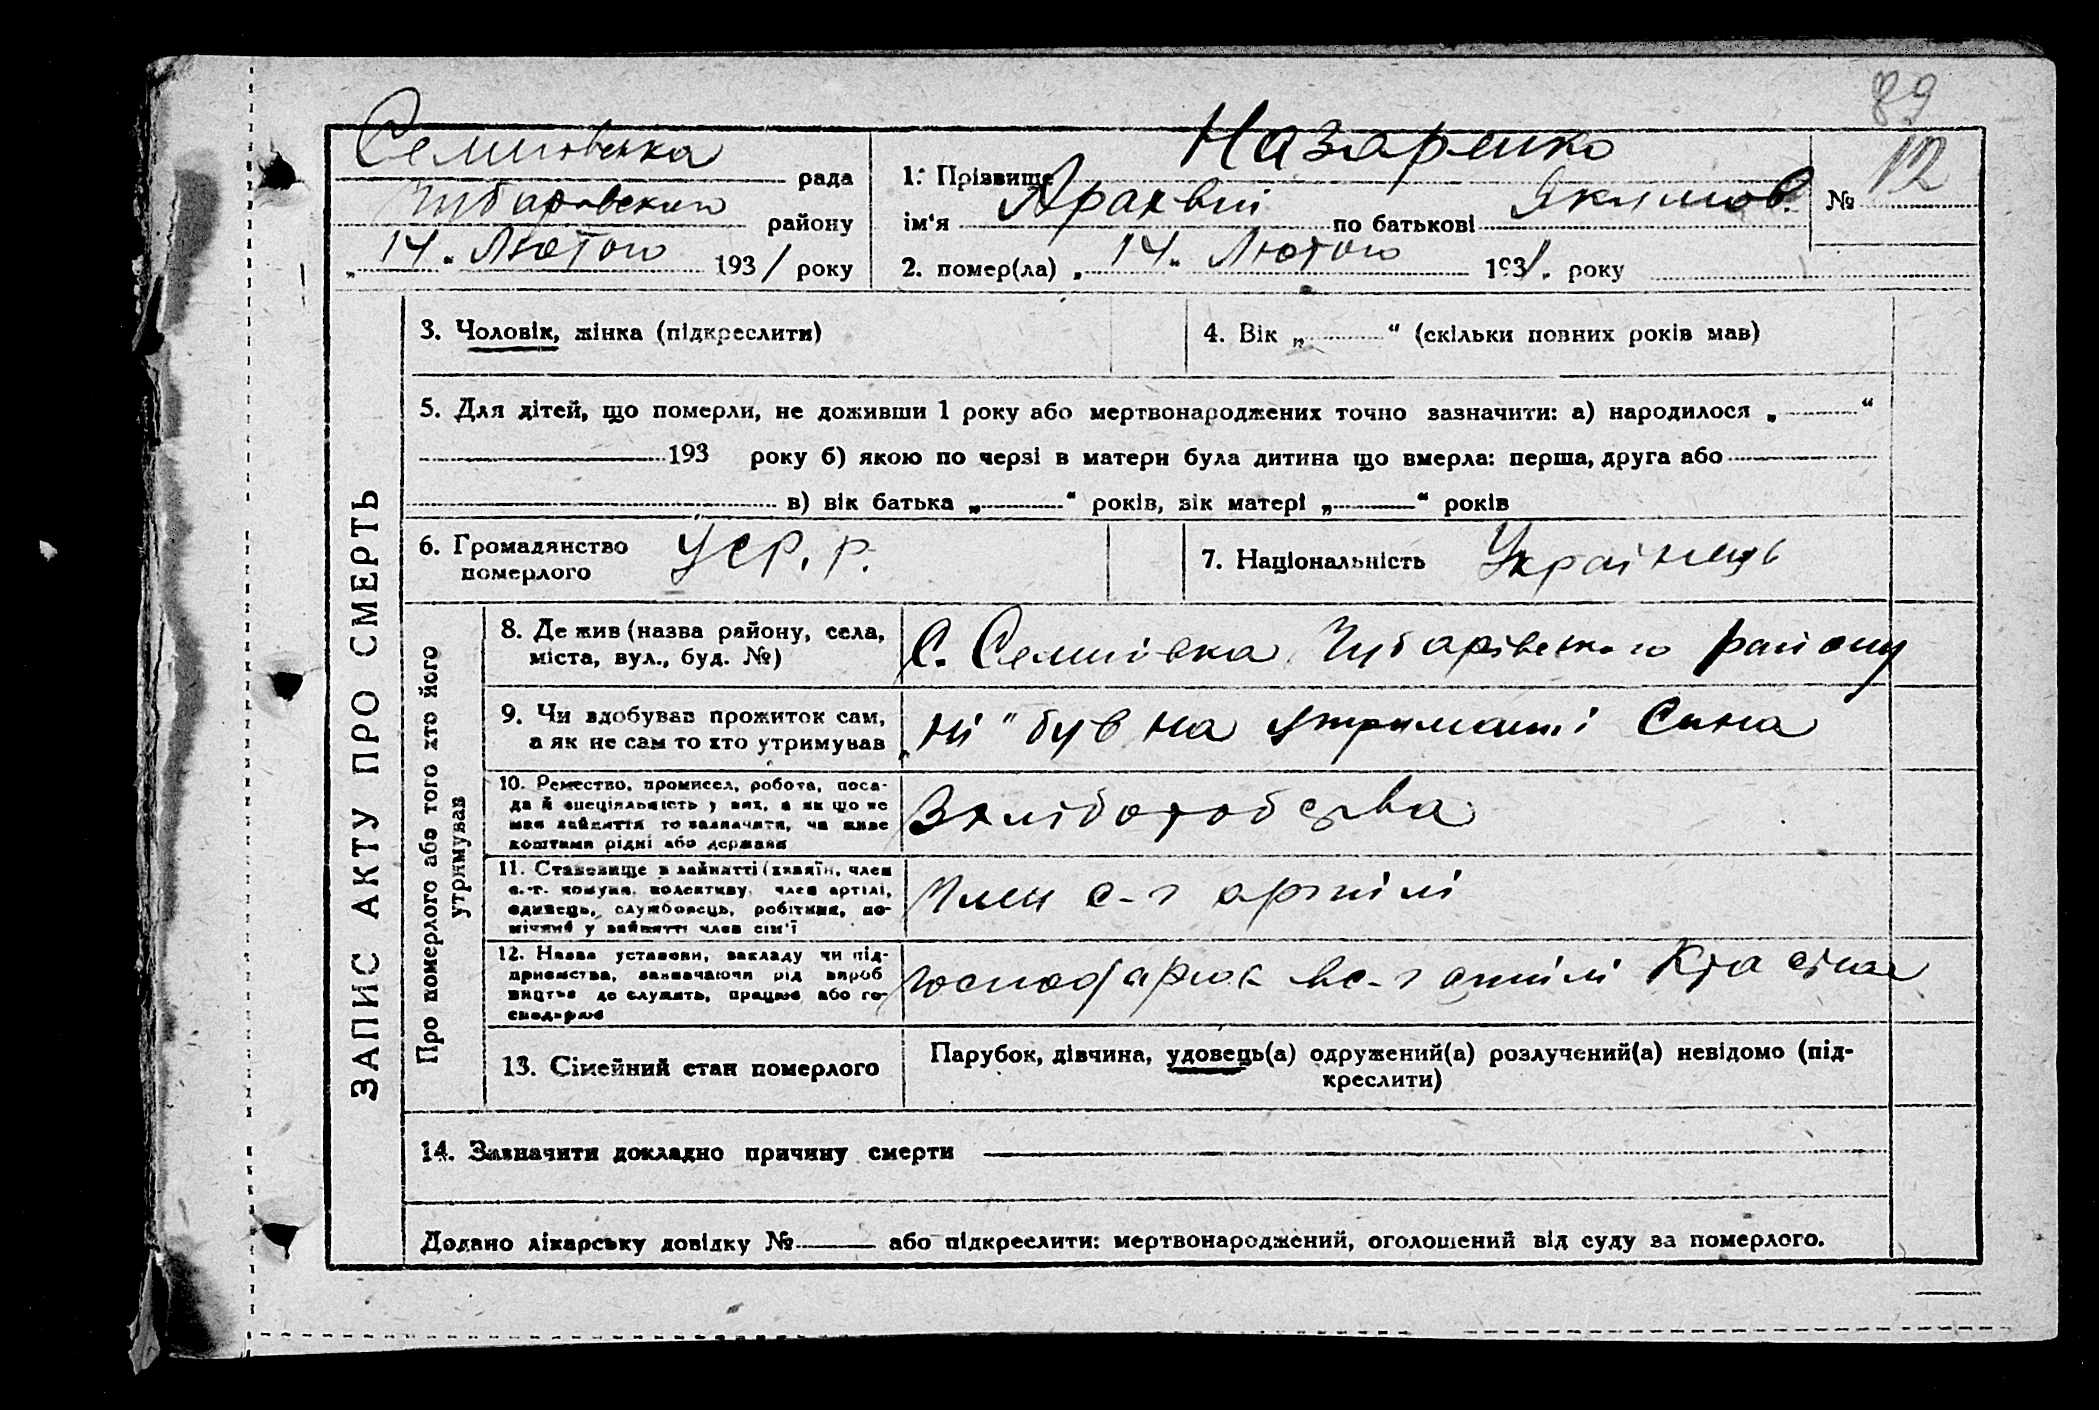 89
Семиовська рада
Чубаровський району
„14“ Лютого 1931 року
1. Прізвище Назаренко
ім'я по батькові Якимов.
№ 12
2. помер(ла) „14“ Лютого 1931. року
ЗАПИС АКТУ ПРО СМЕРТЬ
3. Чоловік, жінка (підкреслити)
4. Вік „ “ (скільки повних років мав)
5. Для дітей, що померли, не доживши 1 року або мертвонароджених точно зазначити: а) народилося „ “
193 року б) якою по черзі в матери була дитина що вмерла: перша, друга або
в) вік батька „ “ років, вік матері „ “ років
6. Громадянство
померлого
УСР.р.
7. Національність Українець
Про померлого або того хто його
утримував
8. Де жив (назва району, села,
міста, вул., буд. №)
С. Семиівка Чубарівського району
9. Чи здобував прожиток сам,
а як не сам то хто утримував
„ні" був на утриманні Сина
10. Ремество, промисел, робота, поса-
да й спеціяльність у них, а як що не
мав зайняття то зазначити, чи живе
коштами рідні або держави
З хліборобства
11. Становище в зайнятті (хазяїн, член
с.-г. комуни, колективу, член артілі,
одинець, службовець, робітник, по-
мічний у зайнятті член сім'ї
Член с-г артілі
12. Назва установи, закладу чи під-
приємства, зазначаючи рід вироб
ництва де служить, працює або го-
сподарює
господарює в с-г артілі
13. Сімейний стан померлого
Парубок, дівчина, удовець(а) одружений(а) розлучений(а) невідомо (під-
креслити)
14. Зазначити докладно причину смерти
Додано лікарську довідку № або підкреслити: мертвонароджений, оголошений від суду за померлого.